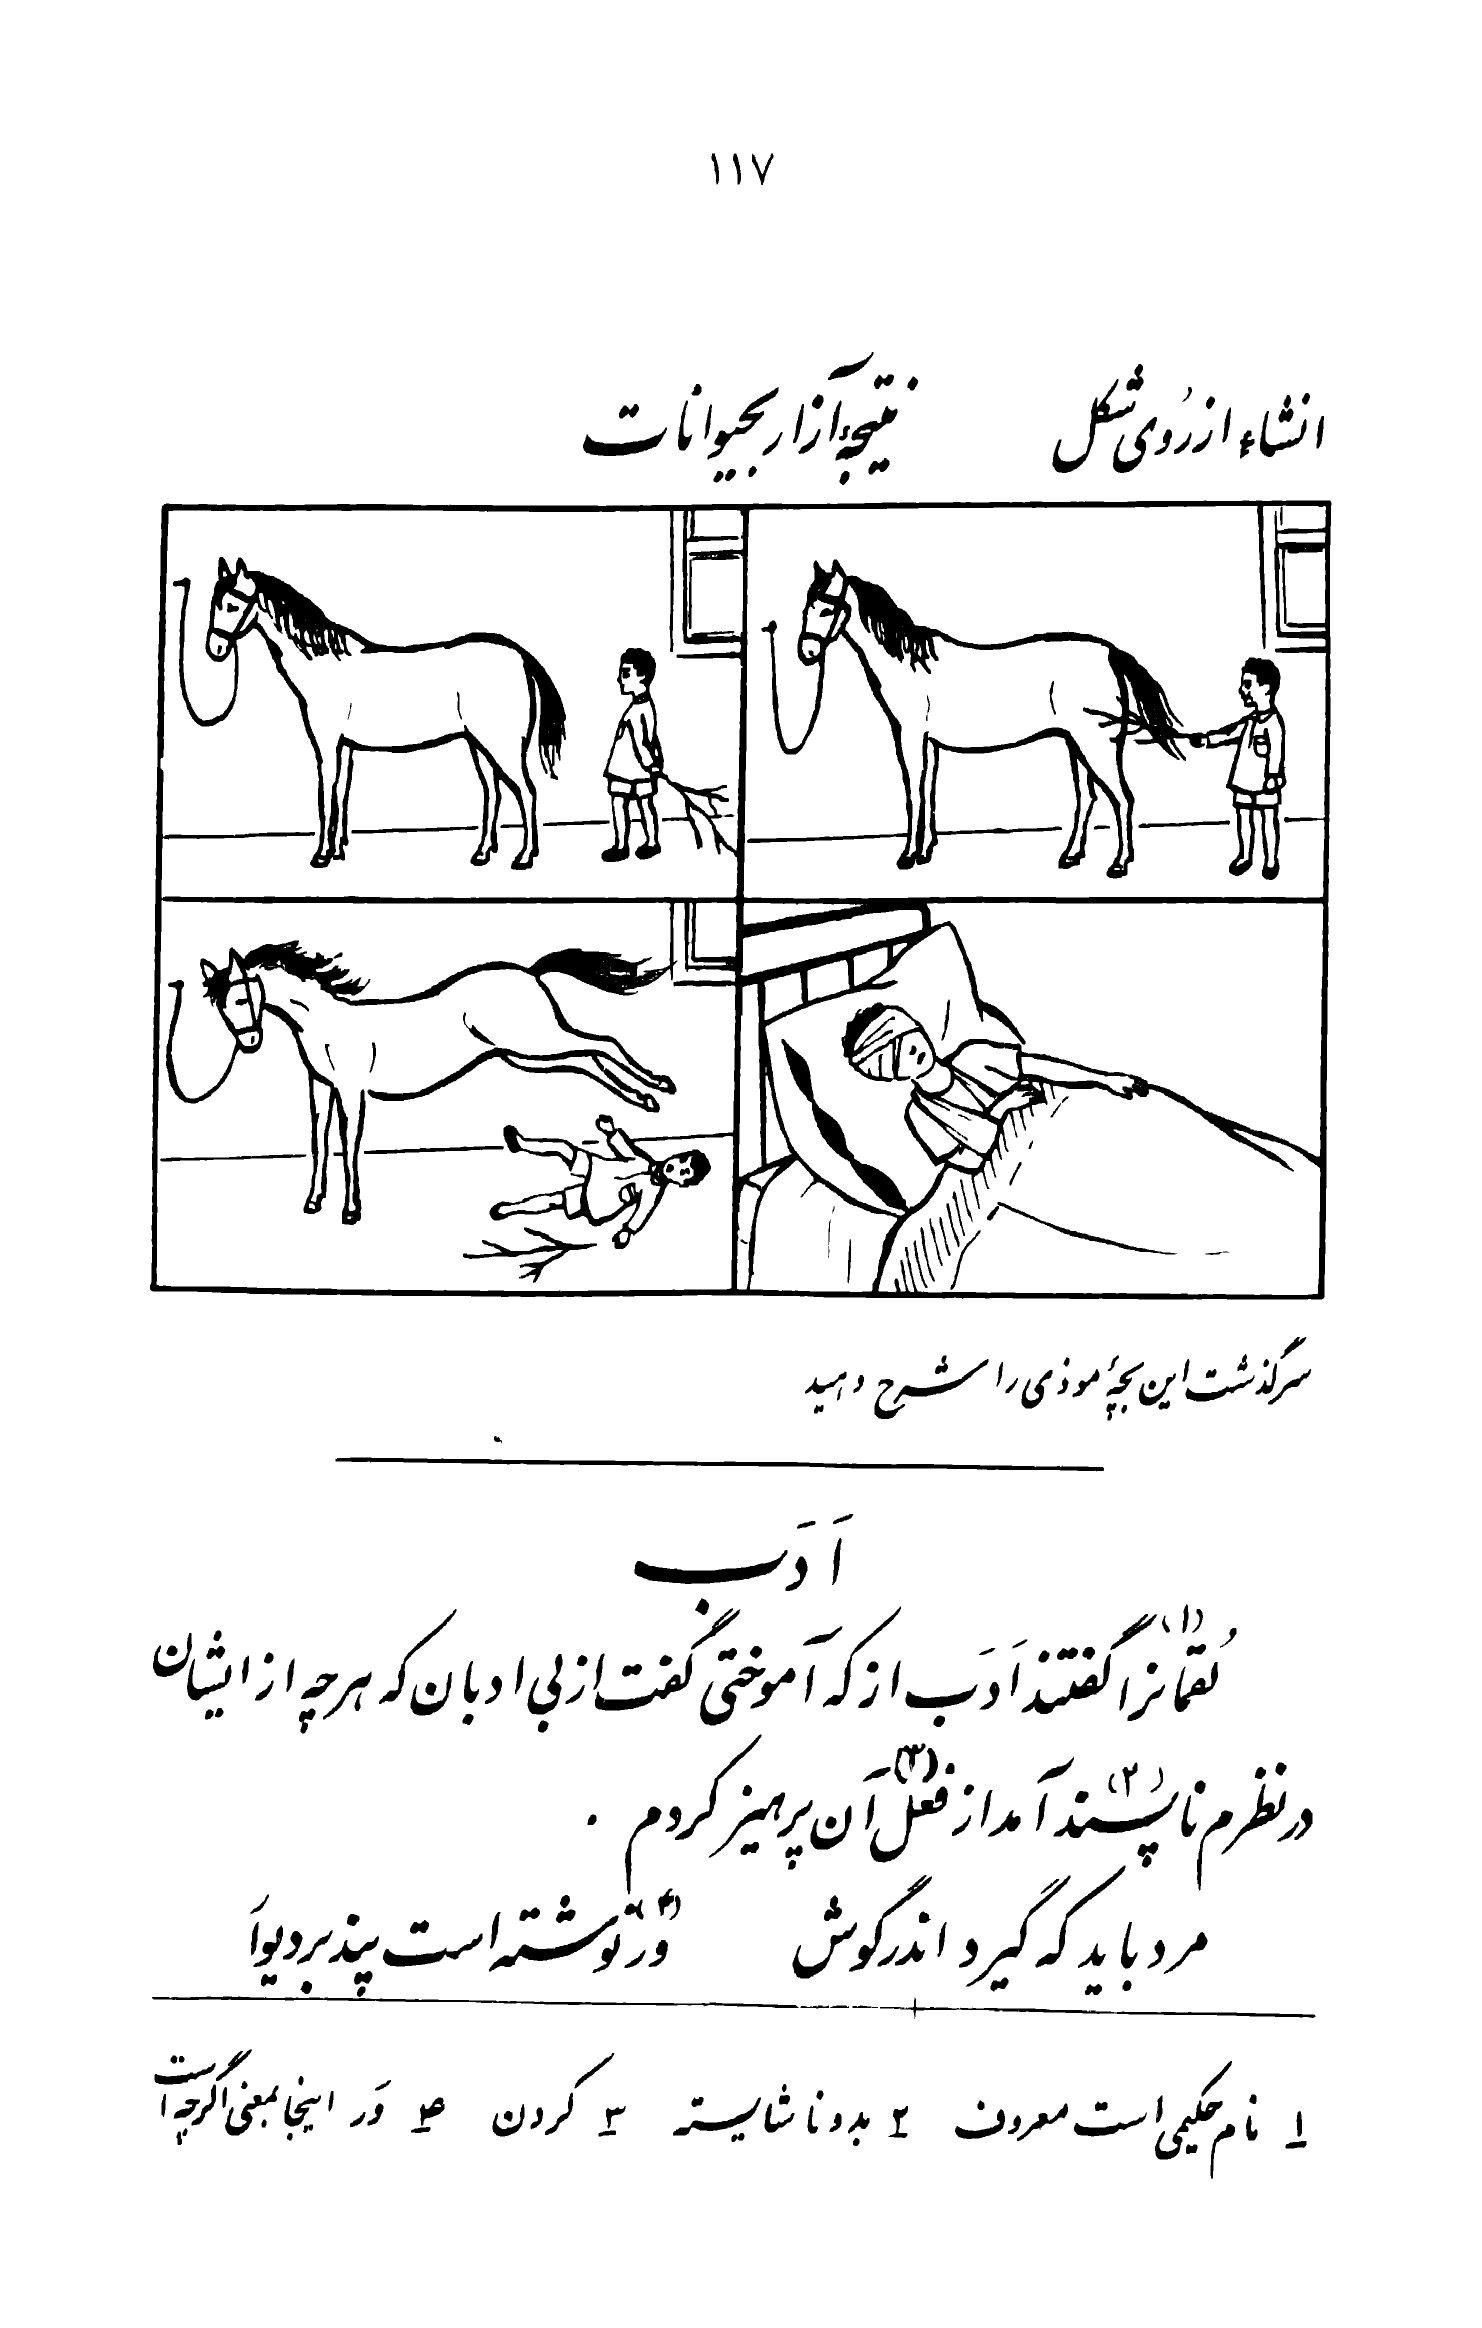 ۱۱۷
انشاء از رُوی شکل نتیجهٔ آزار بحیوانات
سرگذشت این بچهٔ موذی را شرح دهید
اَدَب
لُقمانرا (۱) گفتند اَدَب از که آموختی گفت از بی ادبان که هرچه از ایشان
در نظرم ناپسند (۲) آمد از فعل (۳) آن پرهیز کردم .
مرد باید که گیرد اندر گوش وَر (۴) نوشته است پند بر دیوار
۱ نام حکیمی است معروف ۲ بد و ناشایسته ۳ کردن ۴ وَر اینجا بمعنی اگرچه است